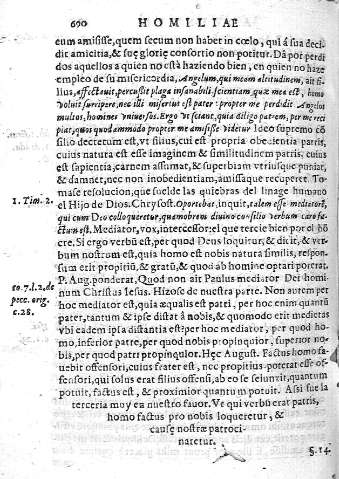 690 HOMILIAE
eum amisisse, quem secum non habet in cœlo, qui á sua deci-
dit amicitia, & suę glorię consortio non potitur. Dà por perdi
dos aquellos a quien no està haziendo bien, en quien no haze
empleo de su misericordia, Angelum, qui meam altitudinem, ait fi-
lius, affectauit, percussit plaga insanabili scientiam, quæ mea est, homo
voluit surripere, nec illi misertus est pater: propter me perdidit Angelos
multos, homines vniuersos. Ergo vt sciant, quia diligo patrem, per me reci
piat, quos quodammodo propter me amisisse videtur Ideo supremo cō
silio decretum est, vt filius, cui est propria obedientia patris,
cuius natura est esse imaginem & similitudinem patris, cuius
est sapientia, carnem assumat, & superbiam vtriusque puniat,
& damnet, nec non inobedientiam, amissaque recuperet. To-
mase resolucion, que suelde las quiebras del linage humano
1. Tim. 2. el Hijo de Dios. Chrysost. Oportebat, inquit, talem esse mediatorē,
qui cum Deo colloqueretur, quamobrem diuino consilio verbum caro fa-
ctum est. Mediator, vox, intercessor: el que tercie bien por el hō
bre. Si ergo verbū est, per quod Deus loquitur, & dicit, & ver-
bum nostrom est, quia homo est nobis natura similis, respon-
sura erit propitiū, & gratū, & quod ab homine optari poterat.
to.7.l.2. de P. Aug. ponderat, Quod non ait Paulus mediator Dei homi-
pecc. orig. num Christus Iesus. Hizose de nuestra parte. Non autem per
c.28. hoc mediator est, quia æqualis est patri, per hoc enim quantū
pater, tantum & ipse distat à nobis, & quomodo erit medietas
vbi eadem ipsa distantia est? per hoc mediator, per quod ho-
mo, inferior patre, per quod nobis propinquior, superior no-
bis, per quod patri propinquior. Hęc August. Factus homo fa-
uebit offensori, cuius frater est, nec propitius poterat esse of-
fensori, qui solus erat filius offensi, ab eo se seiunxit, quantum
potuit, factus est, & proximior quantum potuit. Assi fue la
terceria muy en nuestro fauor. Ve qui verbū erat patris,
homo factus pro nobis loqueretur, &
cause nostræ patroci-
naretur.
§.14